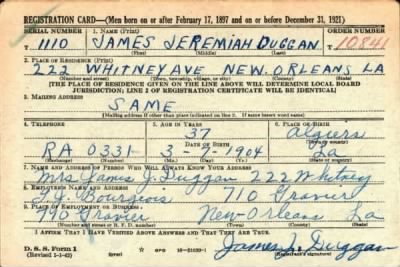 REGISTRATION CARD—(Men born on or after February 17, 1897 and on or before December 31, 1921)
SERIAL NUMBER 1. NAME (Print) ORDER NUMBER
T 1110 JAMES JEREMIAH DUGGAN T 10841
(First) (Middle) (Last)
2. PLACE OF RESIDENCE (Print)
222 WHITNEY AVE NEW ORLEANS LA
(Number and street) (Town, township, village, or city) (County) (State)
[THE PLACE OF RESIDENCE GIVEN ON THE LINE ABOVE WILL DETERMINE LOCAL BOARD
JURISDICTION; LINE 2 OF REGISTRATION CERTIFICATE WILL BE IDENTICAL]
3. MAILING ADDRESS
SAME
(Mailing address if other than place indicated on line 2. If same insert word same)
4. TELEPHONE 5. AGE IN YEARS 6. PLACE OF BIRTH
37 Algiers
DATE OF BIRTH
RA 0331 3-7-904 La
7. NAME AND ADDRESS OF PERSON WHO WILL ALWAYS KNOW YOUR ADDRESS
Mrs James J. Duggan 222 Whitney
8. EMPLOYER'S NAME AND ADDRESS
J. Bourgeois 710 Gravier
9. PLACE OF EMPLOYMENT OR BUSINESS
790 Gravier New Orleans La
(Number and street or R. F. D. number) (Town) (County) (State)
I AFFIRM THAT I HAVE VERIFIED ABOVE ANSWERS AND THAT THEY ARE TRUE.
D. S. S. Form 1
(Revised 1-1-42) GPO 16-21630-1
James J. Duggan